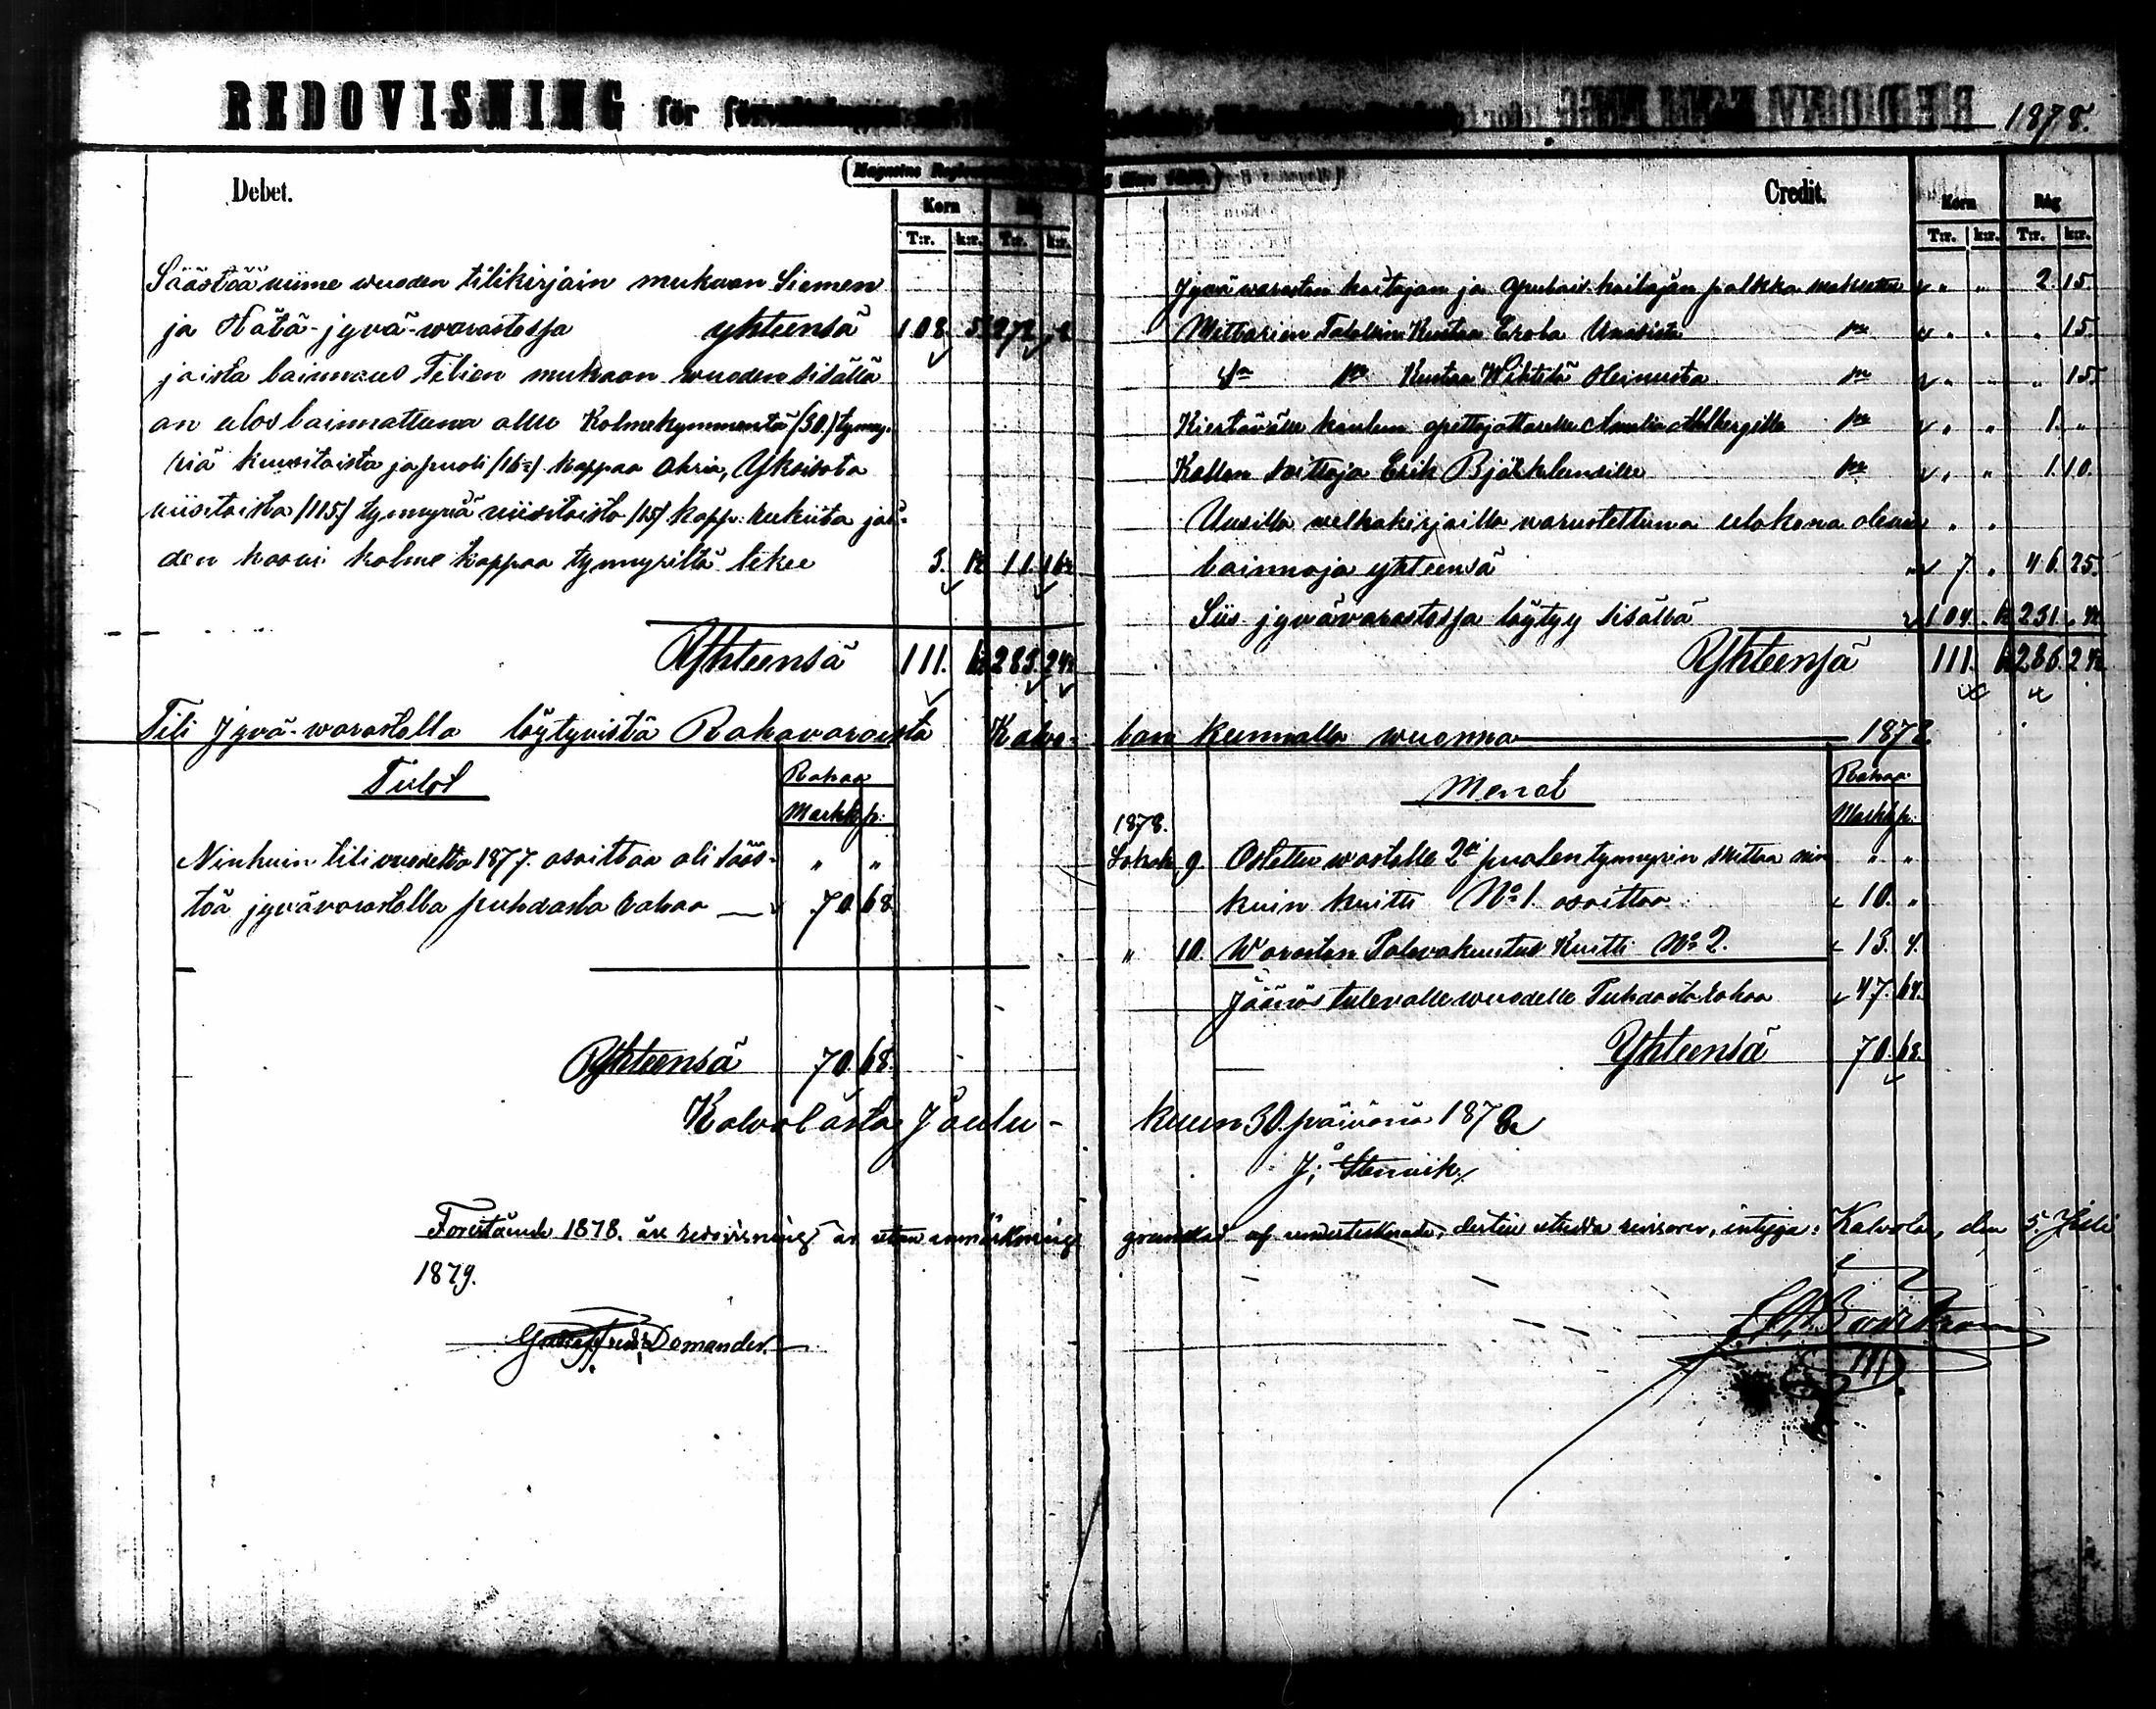 REDOVISNING för
1878.
Debet.
Korn
T:r. k:r. T:r. k:r.
Säästöä viime wuoden tilikirjain mukaan Siemen
ja Hätä-jyvä-warastossa yhteensä 108. 5 272.
joista lainnaus Tilien mukaan wuoden sisällä
on ulos lainnattuna ollu Kolmekymmentä (30.) tynny-
riä kuusitoista ja puoli /16½/ kappaa ohria, Yksisata
viisitoista /115/ tynnyriä viisitoista /15/ kapp: rukiita joi-
den kasvu kolme kappaa tynnyriltä tekee 3. 11. 16½
Yhteensä 111. 283. 24½
Credit.
Korn Råg
T:r. k:r. T:r. k:r.
Jyvä waraston hoitajan ja apulais hoitajan palkka maksettu " " 2. 15.
Mittarien Talollinen Kustaa Erola Unasista " " " 15.
Kustaa Wihtilä Oleinusta " " " 15.
Kiertävälle koulun opettajattarelle Amalia Ahlbergille " " 1. "
Kellon soittaja Erik Björklundille " " 1. 10.
Uusilla welkakirjoilla varustettuna ulkona olevia " "
lainnoja yhteensä 7. " 46. 25.
Siis jyvävarastossa löytyy sisällä 104. 231. 4½
Yhteensä 111. 286. 24½
Tili Jyvä-warastolla löytyvistä Rahavaroista Kalvo-
lan kunnalla wuonna 1878
Tulot
Rahaa
Markk p:
Niinkuin tili vuodelta 1877. osoittaa oli sääs- " "
töä jyvävarastolla puhdasta rahaa 70 68
Yhteensä 70. 68.
Menot
Rahaa
Markk p:
1878.
Lokak. 9 Ostettu warastolle 2si puolen tynnyrin mittaa niin " "
kuin kuitti No 1. osoittaa 10. "
" 10. Waraston Palovakuutus Kuitti No 2. 13. 4.
Jäännös tulevalle wuodelle Puhdasta rahaa 47. 64.
Yhteensä 70. 68.
Kalvolasta Joulu-
kuun 30. päivänä 1878
J: Stenvik.
Forestående 1878. års redovisning är utan anmärkning
granskad af undertecknade, dertill utsedda revisorer, intyga: Kalvola, den 5. Juli
1879.
Domander